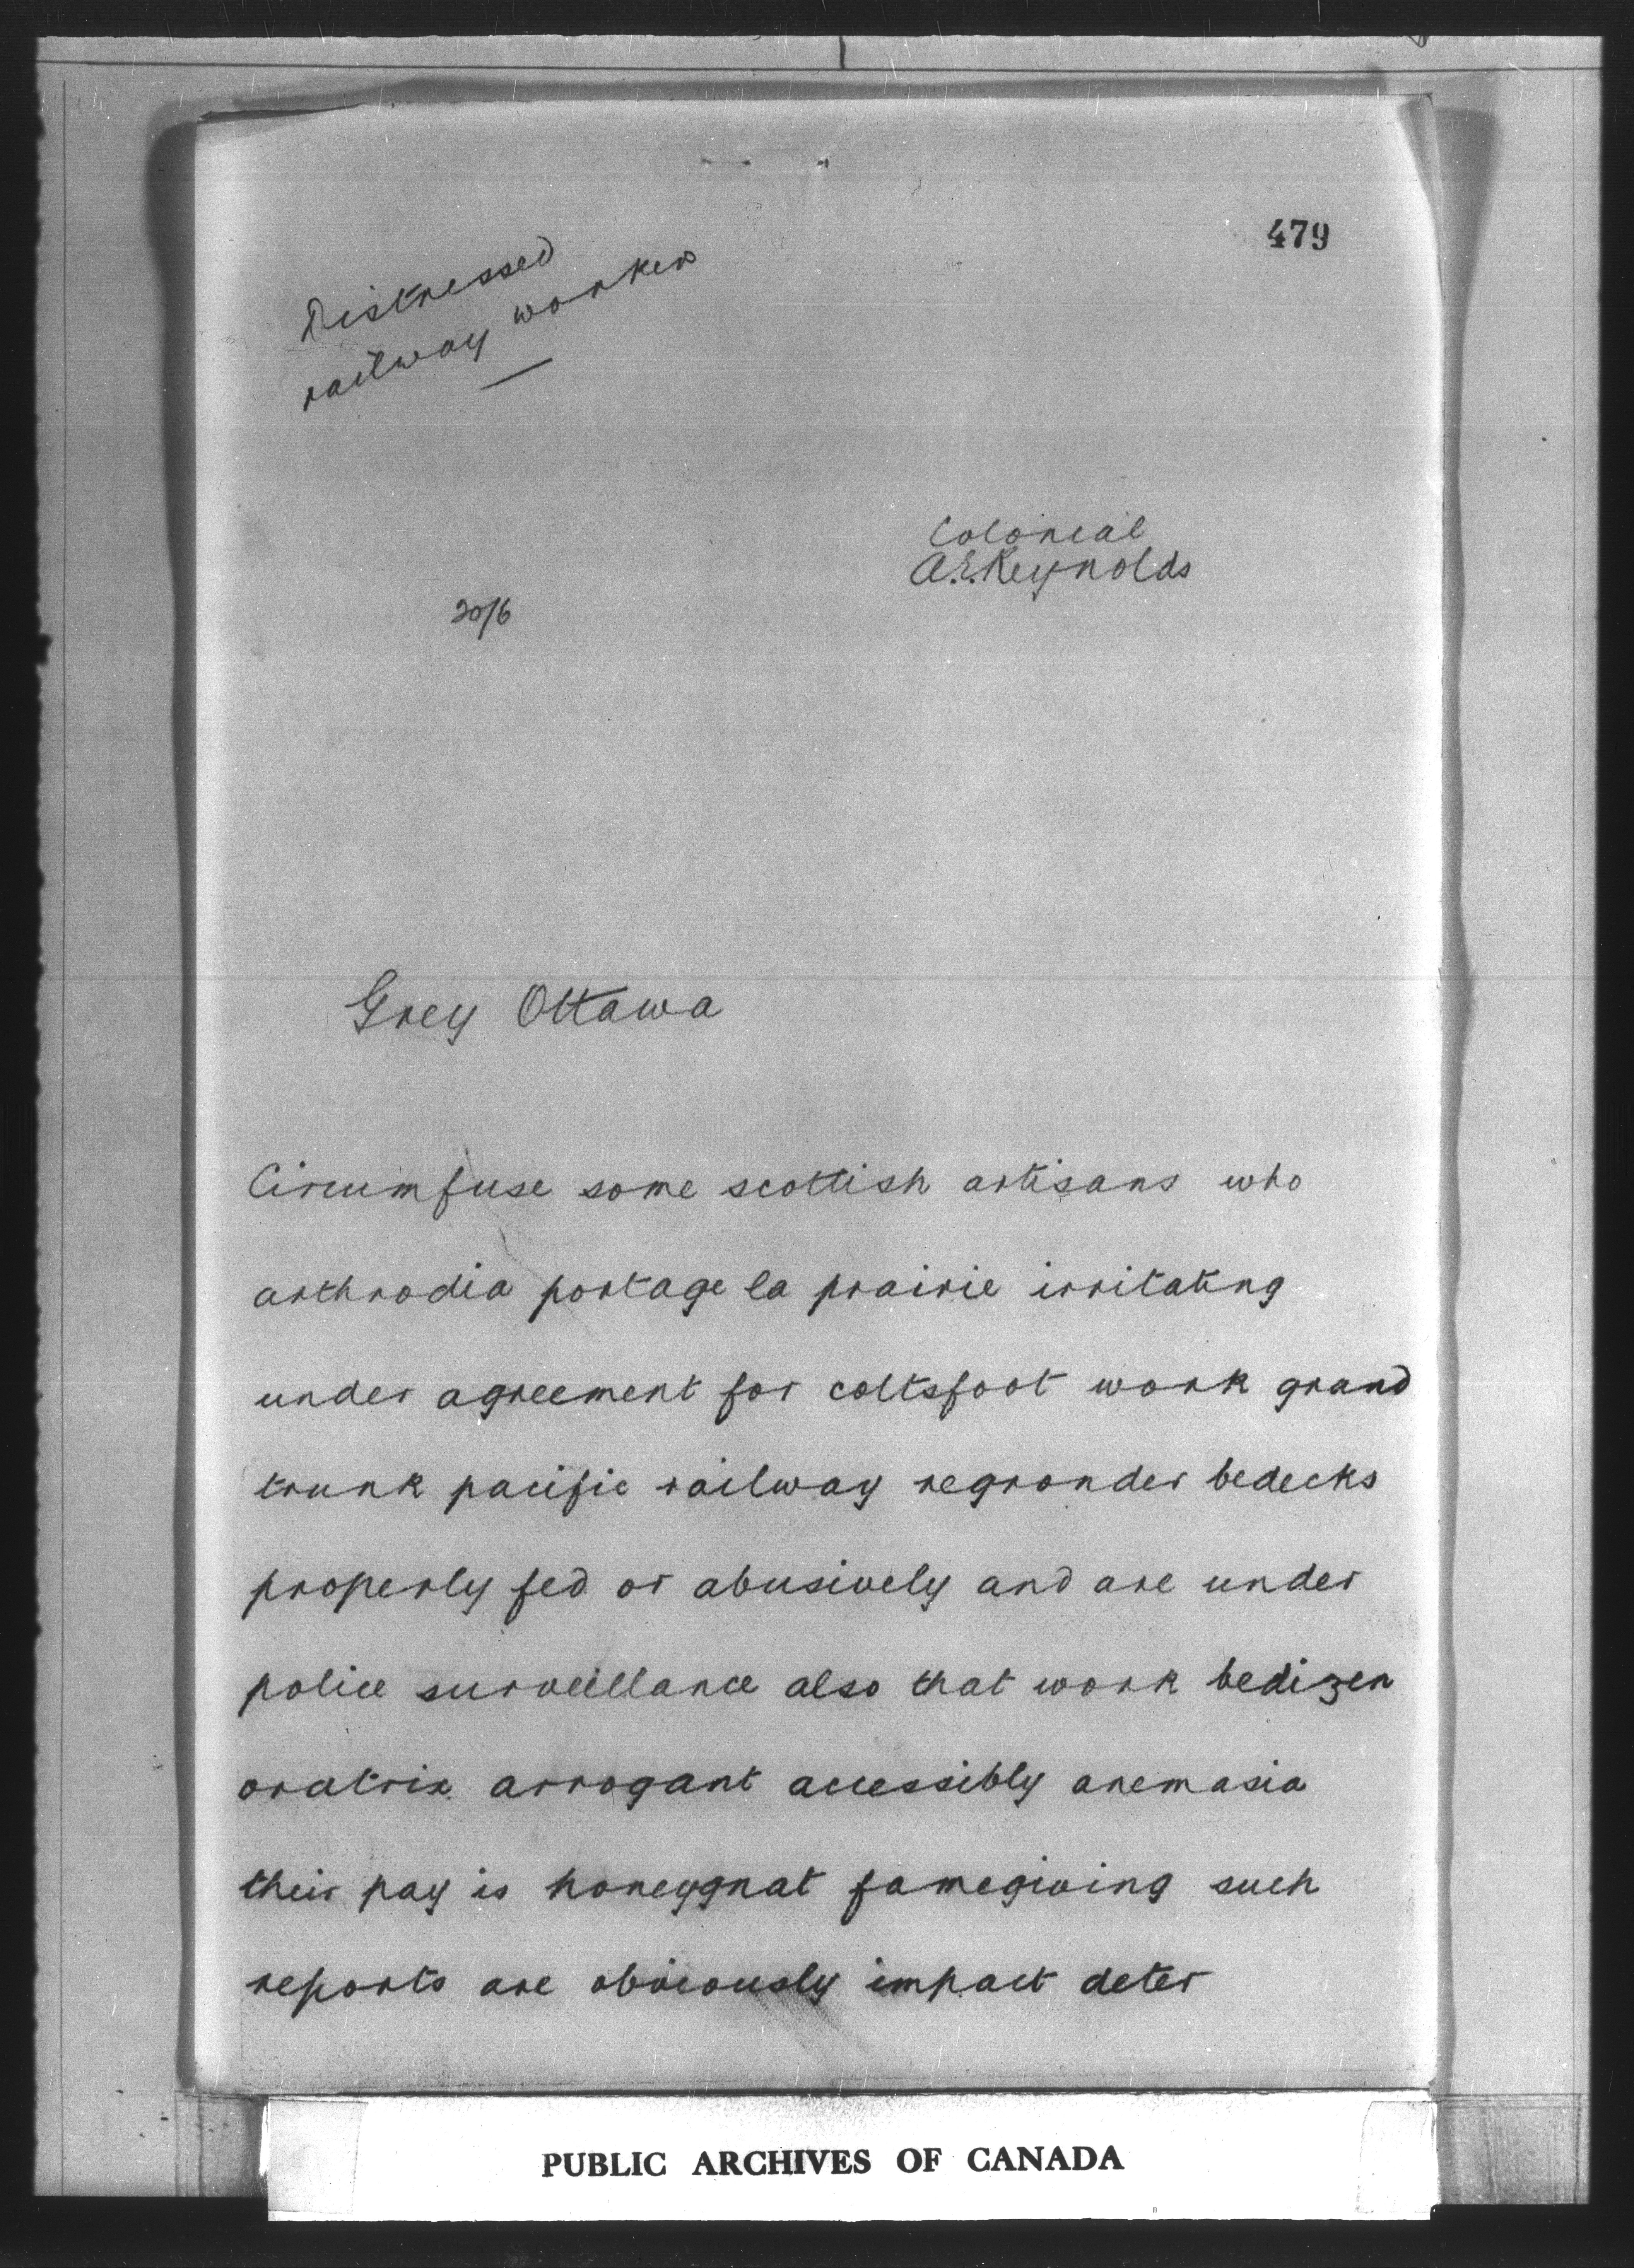 479
Distressed
railway workers
Colonial
A.E. Reynolds
20/6
Grey Ottawa
Circumfuse some scottish artisans who
arthrodia portage la prairie irritating
under agreement for coltsfoot work grand
trunk pacific railway regrander bedecks
properly fed or abusively and are under
police surveillance also that work bedizen
oratrix arrogant accessibly anemasia
their pay is honeygnat famegiving such
reports are obviously impact deter
PUBLIC ARCHIVES OF CANADA